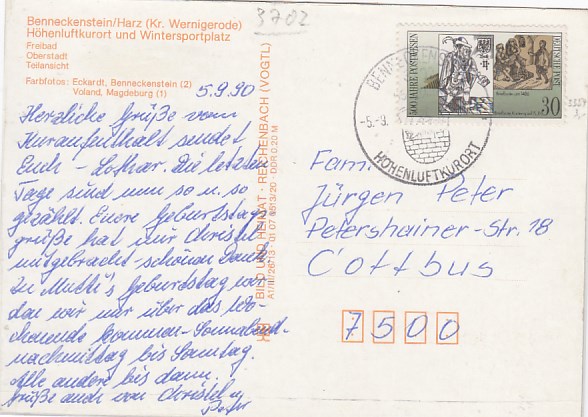 Benneckenstein/Harz (Kr. Wernigerode)
Höhenluftkurort und Wintersportplatz
Freibad
Oberstadt
Teilansicht
Farbfotos: Eckardt, Benneckenstein (2)
Voland, Magdeburg (1)
3702
5.9.90
Herzliche Grüße vom
Kuraufenthalt sendet
Euch - Lothar. Die letzten
Tage sind nun so u. so
gezählt. Eure Geburtstags-
grüße hat mir Christel
mitgebracht - schönen Dank
Zu Mutti's Geburtstag
wir nur über das Wo-
chenende kommen - Sonnabend-
nachmittag bis Sonntag.
Alle andere bis dann.
Grüße auch von Christel u.
BILD UND HEIMAT · REICHENBACH (VOGTL)
DDR 0,20 M
500 JAHRE POSTWESEN
DEUTSCHE POST
30
-5.-9.
HÖHENLUFTKURORT
Fam.
Jürgen Peter
Petershainer-Str. 18
Cottbus
7500